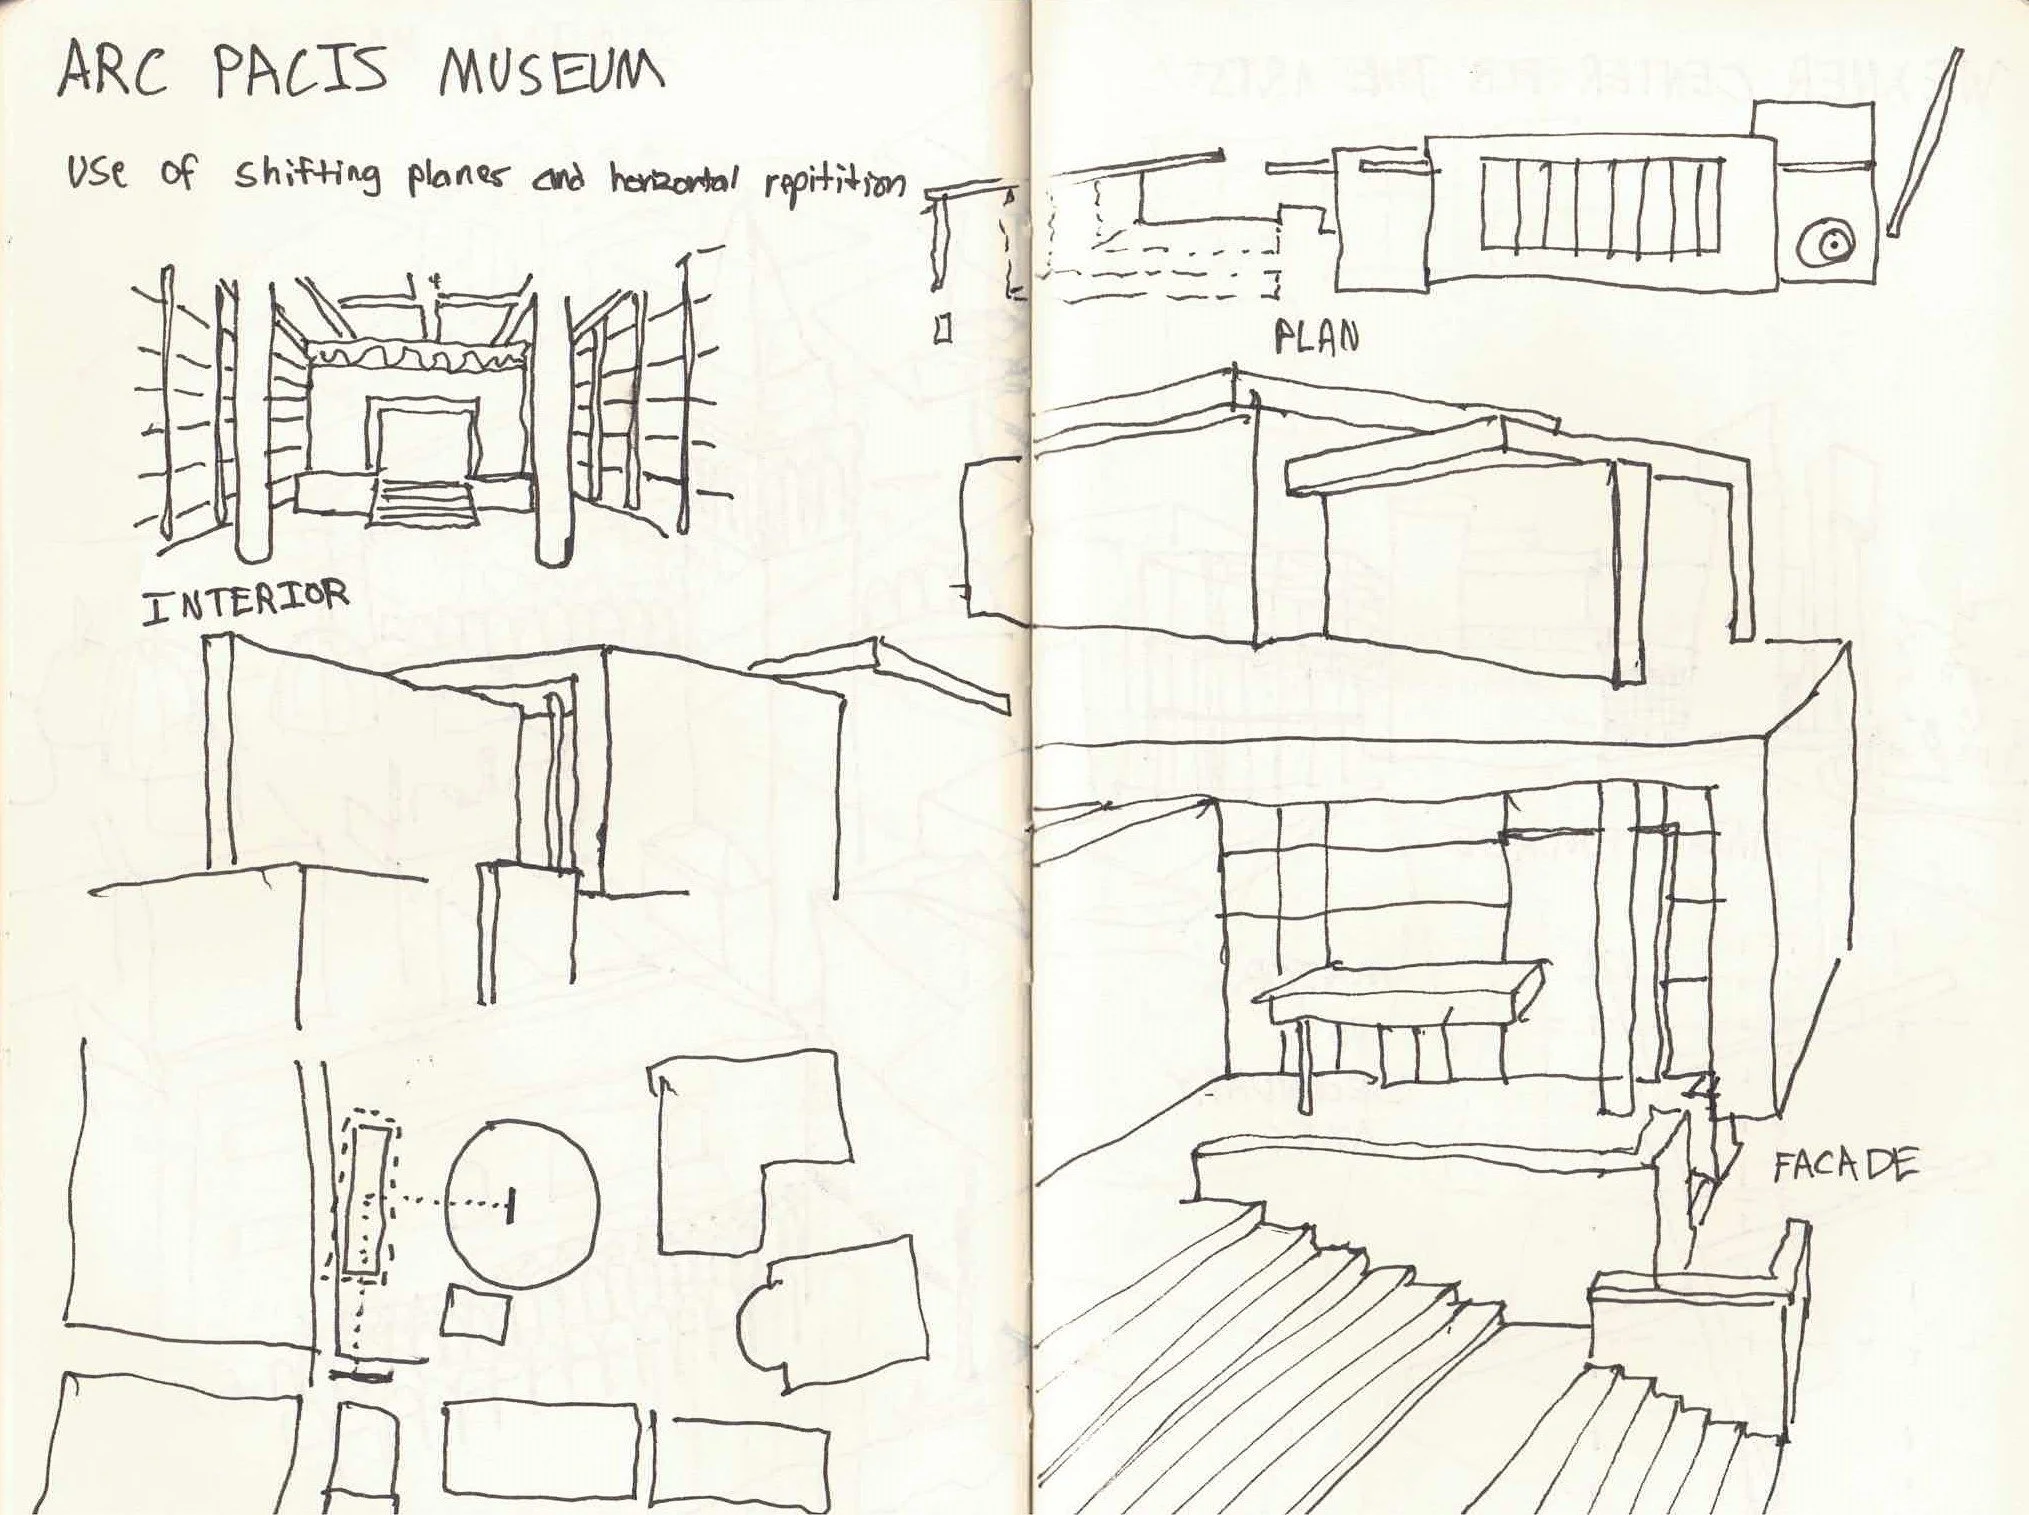 ARC PACIS MUSEUM
USE OF shifting planes and horizontal repitition
INTERIOR
PLAN
FACADE